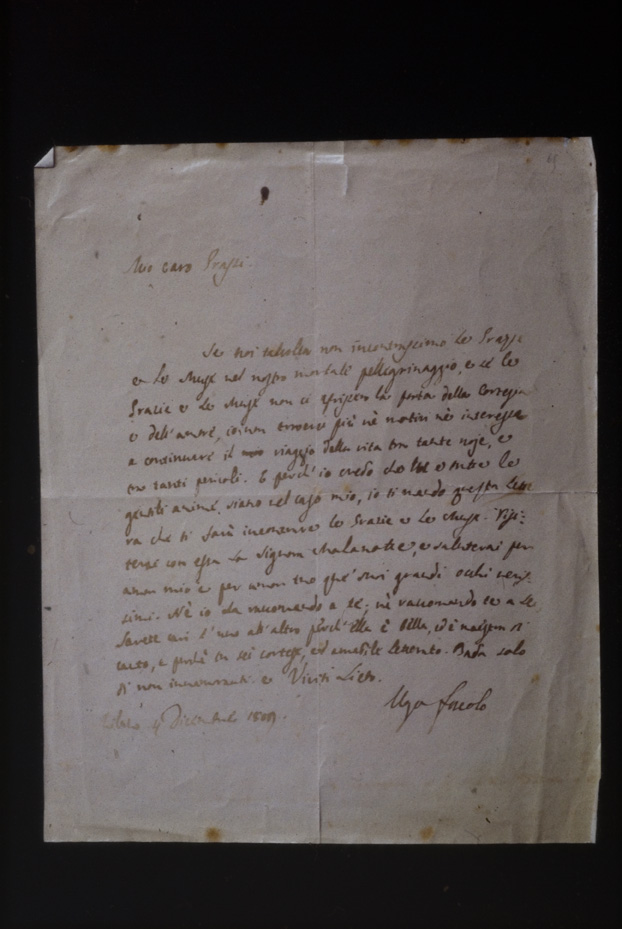 65
Mio caro Grassi.
Se noi talvolta non incontrassimo le Grazie
e le Muse nel nostro mortale pellegrinaggio, e se le
Grazie e le Muse non ci aprissero la porta della Cortesia
e dell'amore, io non troverei più nè motivi nè interesse
a continuare il mio viaggio della vita tra tante noje, e
tra tanti pericoli. E perch'io credo che tu e tutte le
gentili anime, siano nel caso mio, io ti mando questa lette
ra che ti farà incontrare le Grazie e le Muse. Visi:
terai con essa la Signora Malanotte, e saluterai per
amor mio e per amor tuo que' suoi grandi occhi neris:
simi. Nè io la raccomando a te; nè raccomando te a lei
Sarete cari l'uno all'altro perch'Ella è bella, ed è
e perchè tu sei cortese, ed amabile Bada solo
di non innamorarti. e Vivi lieto.
Ugo Foscolo
Milano 4 Dicembre 1809.